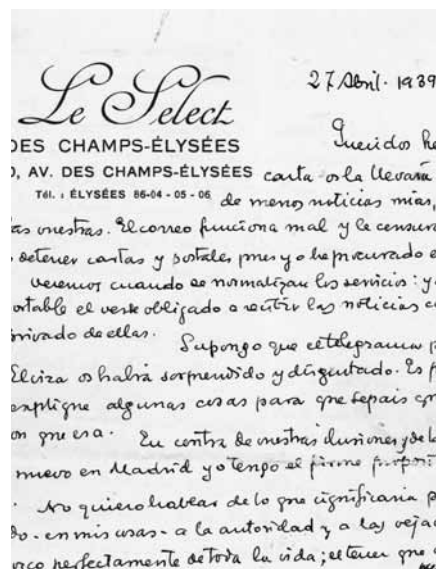 Le Select
27 Abril. 1939
DES CHAMPS-ÉLYSÉES
Queridos he
0, AV. DES CHAMPS-ÉLYSÉES carta os la llevará
Tél. : ÉLYSÉES 86-04 - 05 - 06
de menos noticias mías,
as vuestras. El correo funciona mal y la censura
detener cartas y postales pues yo he procurado e
veremos cuando se normalizan los servicios: y
ortable el verse obligado a recibir las noticias c
privado de ellas.
Supongo que el telegrama p
Elvira os habrá sorprendido y disgustado. Es p
explique algunas cosas para que sepais q
on que esa. En contra de vuestras ilusiones y de l
nuevo en Madrid yo tengo el firme proposit
No quiero hablar de lo que significaria p
do - en mis cosas - a la autoridad y a las veja
perfectamente de toda la vida; el tener que